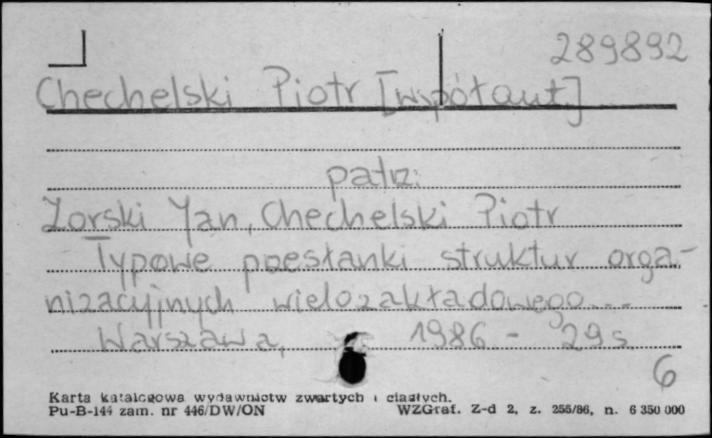 289892
Chechelski Piotr [współaut]
patrz:
Żorski Jan, Chechelski Piotr
Typowe przesłanki struktur orga-
nizacyjnych wielozakładowego...
Warszawa, 1986 - 29 s.
6
Karta katalogowa wydawnictw zwartych i ciągłych.
Pu-B-144 zam. nr 446/DW/ON WZGraf. Z-d 2, z. 255/86, n. 6 350 000